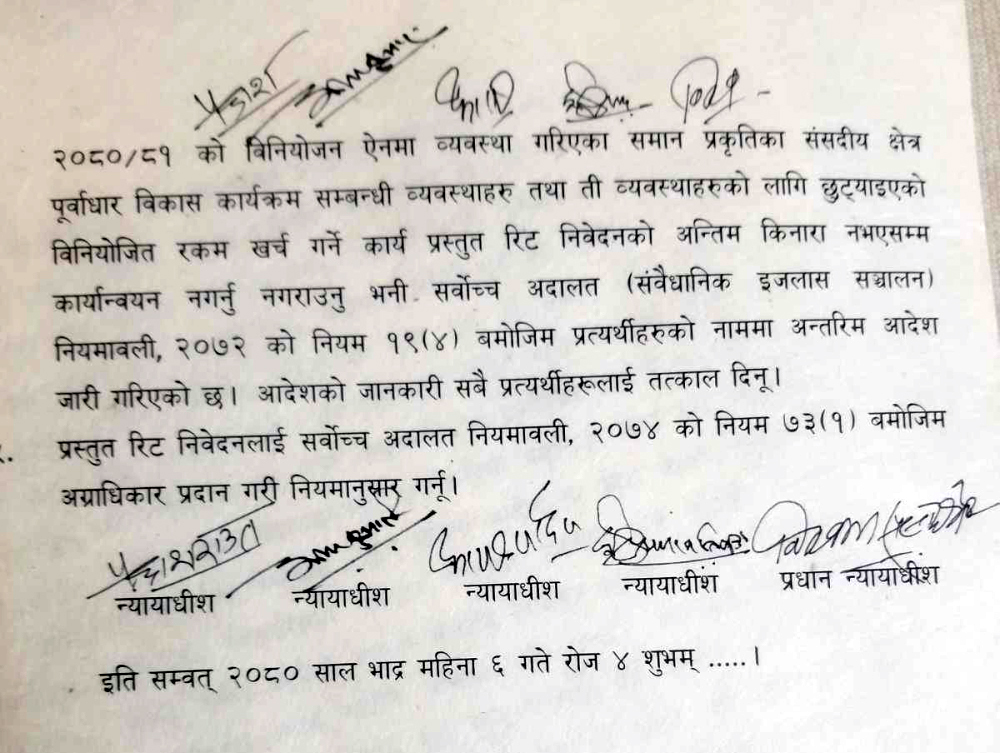 २०८०/८१ को विनियोजन ऐनमा व्यवस्था गरिएका समान प्रकृतिका संसदीय क्षेत्र
पूर्वाधार विकास कार्यक्रम सम्बन्धी व्यवस्थाहरु तथा ती व्यवस्थाहरुको लागि छुट्याइएको
विनियोजित रकम खर्च गर्ने कार्य प्रस्तुत रिट निवेदनको अन्तिम किनारा नभएसम्म
कार्यान्वयन नगर्नु नगराउनु भनी सर्वोच्च अदालत (संवैधानिक इजलास सञ्चालन)
नियमावली, २०७२ को नियम १९(४) बमोजिम प्रत्यर्थीहरुको नाममा अन्तरिम आदेश
जारी गरिएको छ। आदेशको जानकारी सबै प्रत्यर्थीहरूलाई तत्काल दिनू।
प्रस्तुत रिट निवेदनलाई सर्वोच्च अदालत नियमावली, २०७४ को नियम ७३(१) बमोजिम
अग्राधिकार प्रदान गरी नियमानुसार गर्नू।
न्यायाधीश न्यायाधीश न्यायाधीश न्यायाधीश प्रधान न्यायाधीश
इति सम्वत् २०८० साल भाद्र महिना ६ गते रोज ४ शुभम् .....।